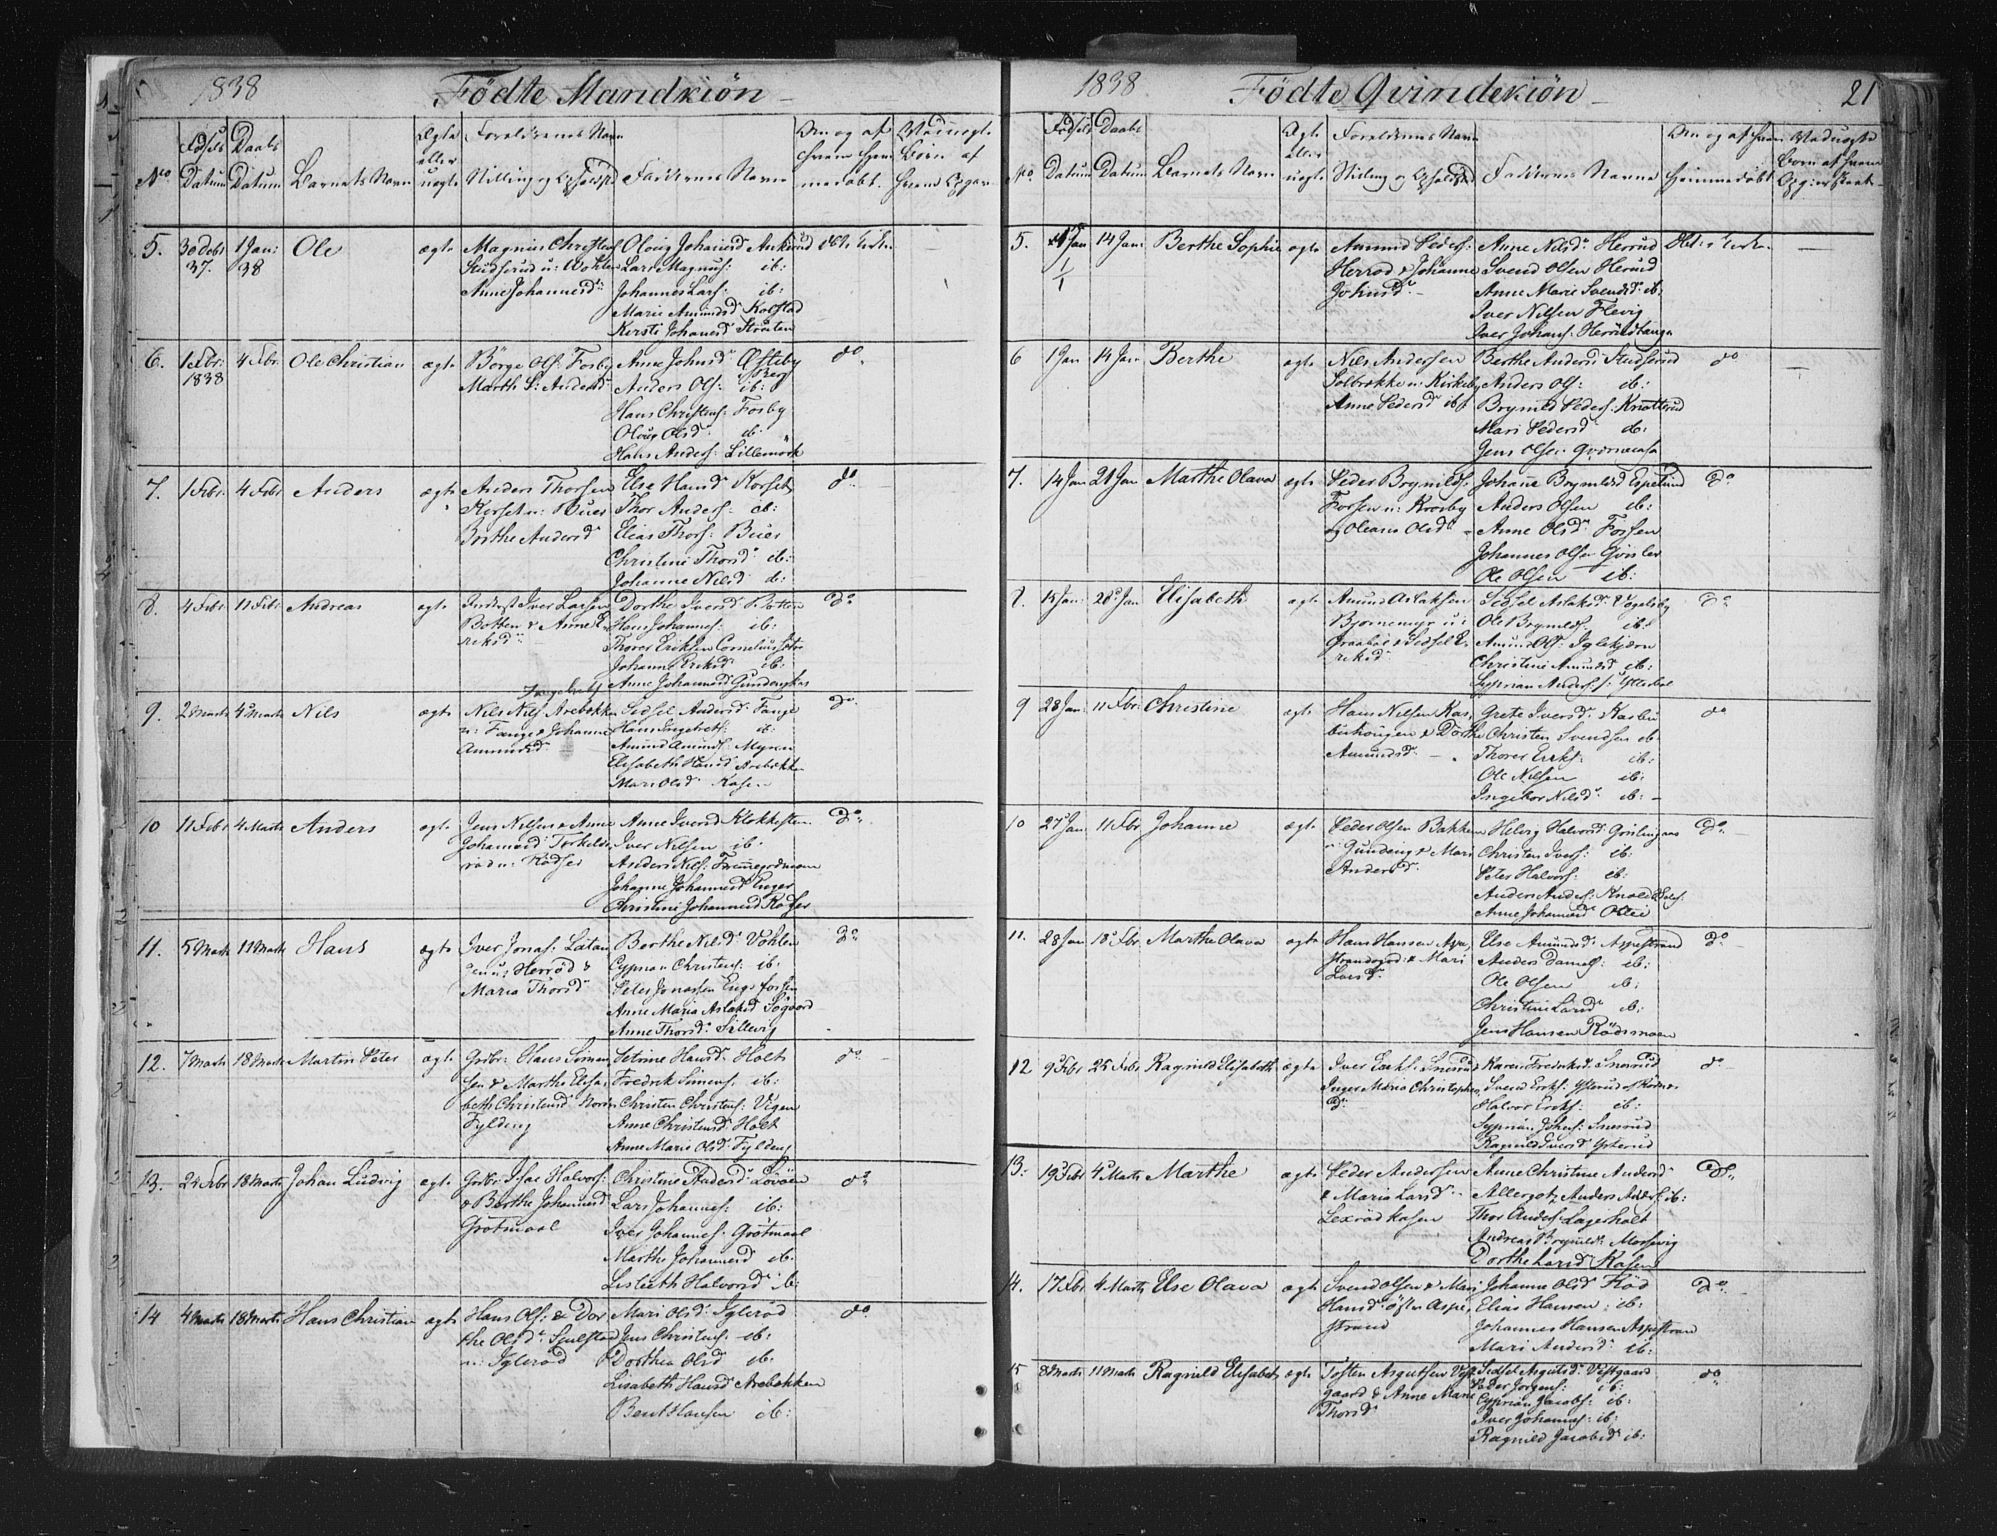 1838 Födte Mandkiön
No Födsels Datum Daabs Datum Barnets Navn Ægte eller uægte Forældrenes Navn Stilling og Opholdst Faddernes Navne
5. 30 Decbr 37. 1 Jan: 38 Ole ægte
Magnus Christens
Studserud u: Wohlen
Anne Johannesd:
Oloug Johannesd Ankerud
Lars Magnus: ib:
Johannes Lars: ib:
Marie Amundsd Kolstad
Kersti Johannesd Straten
6. 1 Febr: 1838 4 Febr. Ole Christian ægte
Börge Ols: Fosby
Marth S: Andersd
Anne Johnsd Østeby
Anders Ols: ib: Berg
Hans Christens: Fosby
Oloug Olsd: ib:
Hans Anders: Lillemark
do
7. 1 Febr. 4 Febr Anders ægte
Anders Thorsen
Korset u: Buer
Berthe Andersd
Else Hansd Korset
Thor Anders: ib:
Elias Thors: Buer
Christine Thorsd ib:
Johanne Nilsd ib:
do
8. 4 Febr 11 Febr Andreas ægte
Inderst Iver Larsen
Botten & Anne E
riksd
Dorthe Iversd Botten
Hans Johannes: ib:
Thorer Eriksen Corneliussæter
Johanne Eriksd ib:
Anne Johannesd Gundengkas
do
9. 2 Marts 4 Marts Nils ægte
Nils Nils: Arebakken
u: Fange & Johanne
Amundsd:
Sidsel Andersd Fange
Hans Ingebrets: ib:
Amund Amunds: Myren
Elisabeth Hansd Arebakken
Mari Olsd Kasen
do
10 11 Febr 4 Marts Anders ægte
Jens Nilsen & Anne
Johannesd Torkilds
rød u: Rödses
Anne Iversd Klokkesten
Iver Nilsen ib:
Anders Nils:
Johanne Johannesd Enger
Christine Johannesd Rödses
do
11. 5 Marts 11 Marts Hans ægte
Iver Jonas: Latan
gen u: Herröd &
Maria Thorsd
Berthe Nilsd: Vohlen
Cyprian Christens: ib:
Peter Jonassen Enge fossen
Anne Maria Aslaksd
Anne Thorsd: Sillevig
do
12. 7 Marts 18 Marts Martin Peter ægte
Grbr: Hans Simen
sen & Marthe Elisa
beth Christensd Nordr
Fylding
Setrine Hansd: Holt
Fredrik Simens: ib:
Christen Christens: Vigen
Anne Christensd: Holt
Anne Marie Olsd: Fylding
do
13. 24 Febr 18 Marts Johan Ludvig ægte
Grbr: Isac Halvors:
& Berthe Johannesd
Grötmaal
Christine Andersd Lövaas
Lars Johannes: ib:
Iver Johannes: Grötmaal
Marthe Johannesd ib:
Lisbeth Halvorsd ib:
do
14 4 Marts 18 Marts Hans Christian ægte
Hans Ols: & Dor
the Olsd: Spulstad
u: Iglerød
Mari Olsd: Iglerød
Jens Christens: ib:
Dorthea Olsd ib:
Lisabeth Hansd Arebakken
Bent Hansen ib:
do
1838 Födte Qvindekiön 21
No Födsels Datum Daabs Datum Barnets Navn Ægte eller uægte Forældrenes Navn Stilling og Opholdsted Faddernes Navne
5. 1 Jan 14 Jan: Berthe Sophie ægte
Amund Peders:
Herröd & Johanne
Johnsd:
Anne Nilsd: Herrud
Svend Olsen Herud
Anne Marie Svendsd: ib:
Iver Nilsen Flevig
Iver Johans: Herrud tange
6 1 Jan 14 Jan Berthe ægte
Nils Andersen
Solbrække u: Kirkeby
Anne Pedersd ib:
Berthe Andersd: Studserud
Anders Ols: ib:
Brynild Peders: Knatterud
Mari Pedersd ib:
Jens Olsen
do
7. 14 Jan 21 Jan Marthe Olava ægte
Peder Brynilds:
Forsen u: Krosby
og Oleane Olsd:
Johane Brynildsd Espelund
Anders Olsen ib:
Anne Olsd: Forsen
Johannes Olsen Qvisler
Ole Olsen ib:
do
8. 15 Jan: 28 Jan Elisabeth ægte
Amund Aslaksen
Bjornemyr u:
Graaböl & Sidsel E
riksd
Sidsel Aslaksd: Vogelsby
Ole Brynilds: ib:
Amund Ols: Iglekjærn
Christine Amundsd ib:
Syprian Anders: Ytterböl
do
9 28 Jan: 11 Febr: Christine ægte
Hans Nilsen Kas
buhougen & Dorthe
Amundsd:
Grete Iversd: Kasbu
Christen Svendsen ib
Thorer Eriks: ib:
Ole Nilsen ib:
Ingebor Nilsd: ib:
do
10 27 Jan 11 Febr Johanne ægte
Peder Olsen Bakken
u: Gundeng & Mari
Andersd:
Helvig Halvorsd:
Christen Ivers: ib:
Peter Halvors: ib:
Anders Anders: Knold
Anne Johannesd
do
11. 28 Jan 18 Febr. Marthe Olava ægte
Hans Hansen Aspe
strandeød: & Mari
Larsd:
Else Amundsd: Aspestrand
Anders Daniels: ib:
Ole Olsen ib:
Christine Larsd ib:
Jens Hansen Rödsmoen
do
12 9 Febr 25 Febr Ragnild Elisabeth ægte
Iver Eriks: Snesrud
Inger Maria Christophers
d:
Karen Fredriksd: Snesrud
Svend Eriks: Ysterud
Halvor Eriks: ib:
Syprian Johans: Snesrud
Ragnild Iversd Ysterud
do
13. 19 Febr 4 Marts Marthe ægte
Peder Andersen
& Maria Larsd
Lexröd kasen
Anne Christine Andersd
Allergot, Anders Anders: ib:
Thor Anders: Lagerholt
Andreas Brynilds: Morsevig
Dorthe Larsd Kasen
do
14. 17 Febr 4 Marts Else Olava ægte
Svend Olsen & Mari
Hansd: östen Aspe
strand
Johanne Olsd Flöd
Elias Hansen: ib:
Johannes Hansen Aspestran
Mari Andersd ib:
do
15 8 Marts 11 Marts Ragnild Elisabet ægte
Tosten Asgutsen Vest
gaard & Anne Marie
Thorsd
Sidsel Asgutsd: Vestgaard
Peder Jorgens: ib:
Cyprian Jacobs: ib:
Iver Johannes: ib:
Ragnild Jacobsd ib:
do